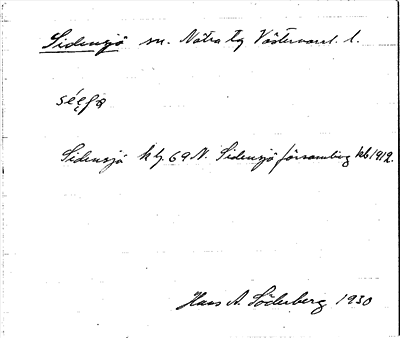 Sidensjö sn. Nätra tg Västernorrl. l.
Sidensjö k tj. 69 N. Sidensjö församling kb 1912.
Hans A. Söderberg 1930